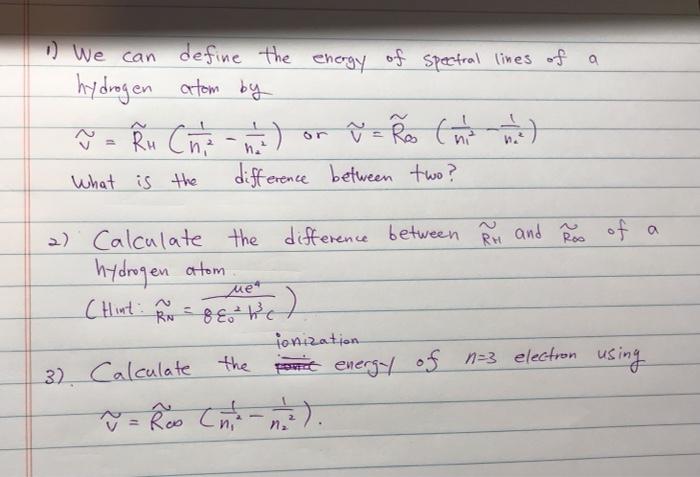 1) We can define the energy of spectral lines of a
hydrogen atom by
ṽ = R̃H (1/n₁² - 1/n₂²) or ṽ = R̃∞ (1/n₁² - 1/n₂²)
What is the difference between two?
2) Calculate the difference between R̃H and R̃∞ of a
hydrogen atom.
(Hint: R̃N = μe⁴/8ε₀²h³c)
3). Calculate the ionization energy of n=3 electron using
ṽ = R̃∞ (1/n₁² - 1/n₂²).